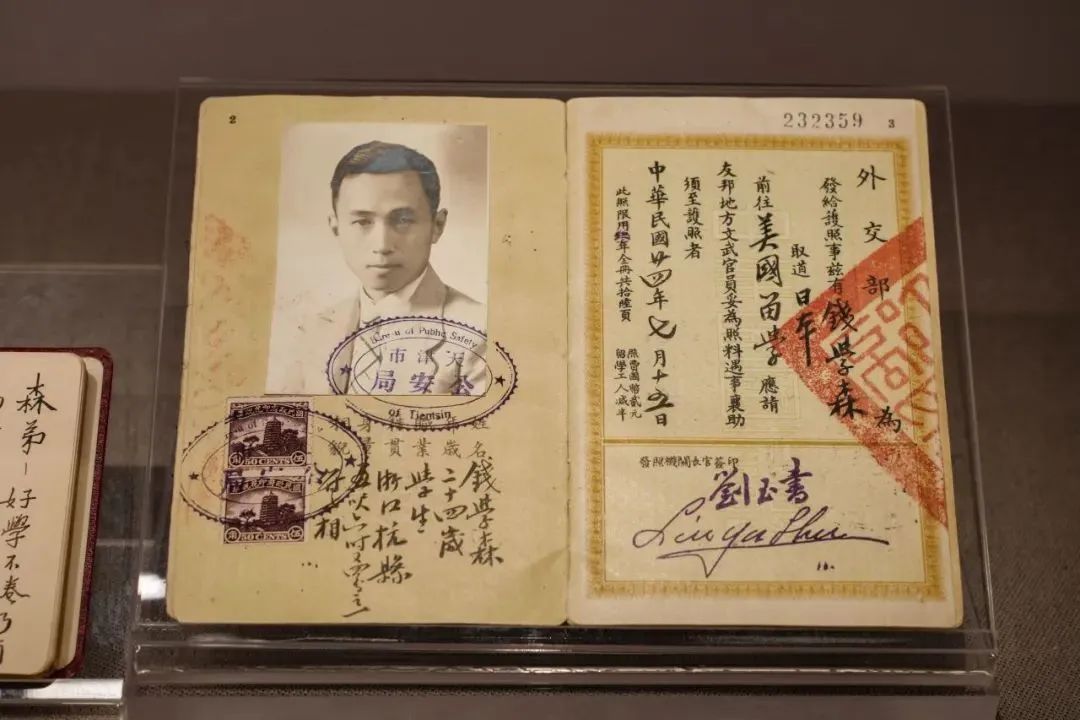 森弟－好
好學不卷
2
Bureau of Public Safety
天津市
公安局
of Tientsin
50 CENTS
50 CENTS
姓名 錢學森
年歲 二十四歲
職業 學生
籍貫 浙江杭縣
身量 五呎
相貌 附相
232359
3
外交部為
發給護照事茲有錢學森
取道日本
前往美國留學應請
友邦地方文武官員妥為照料遇事襄助
須至護照者
中華民國廿四年七月十五日
此照限用年全冊共拾陸頁
照費國幣貳元
留學工人減半
發照機關長官簽印
劉玉書
Liu Yu Shu